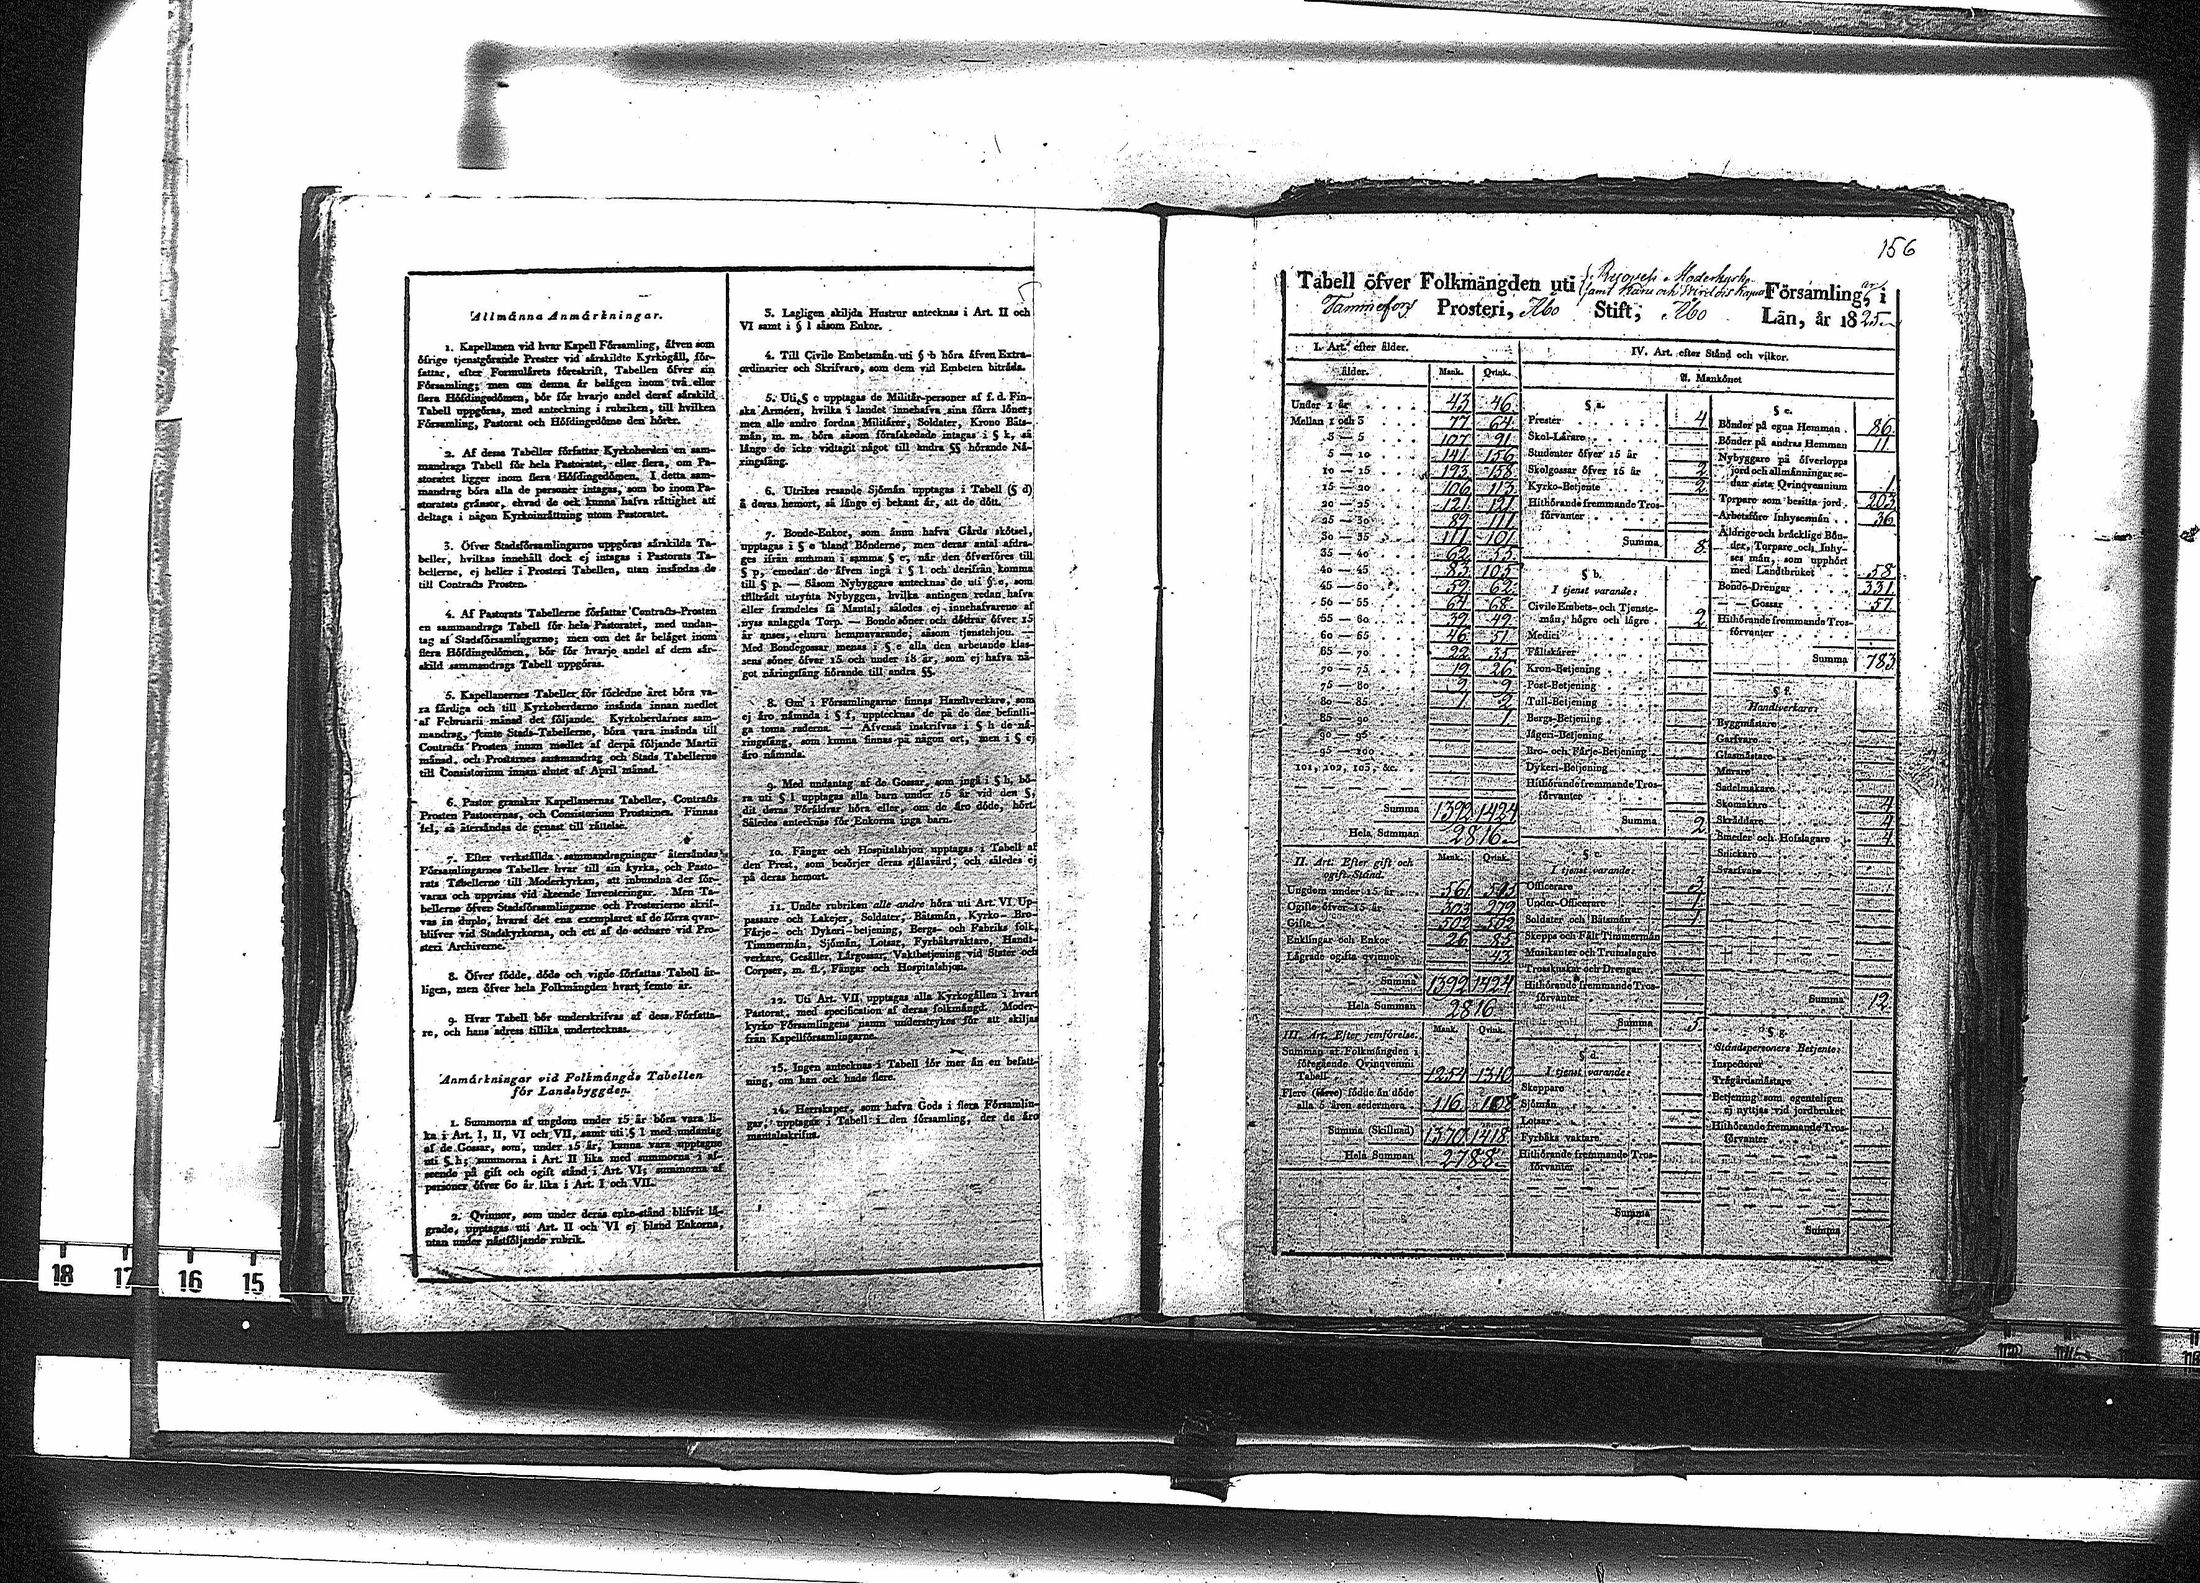 Allmänna Anmärkningar.
1. Kapellanen vid hvar Kapell Församling, äfven som
öfrige tjenstgörande Prester vid särskildte Kyrkogäll, för-
fattar, efter Formulärets föreskrift, Tabellen öfver sin
Församling; men om denna är belägen inom två eller
flera Höfdingedömen, bör för hvarje andel deraf särskild
Tabell uppgöras, med anteckning i rubriken, till hvilken
Församling, Pastorat och Höfdingedöme den hörer.
2. Af dessa Tabeller författar Kyrkoherden en sam-
mandrags Tabell för hela Pastoratet, eller flera, om Pa-
storatet ligger inom flera Höfdingedömen. I detta sam-
mandrag böra alla de personer intagas, som bo inom Pa-
storatets gränsor, ehvad de ock kunna hafva rättighet att
deltaga i någon Kyrkoinrättning utom Pastoratet.
3. Öfver Stadsförsamlingarne uppgöras särskilda Ta-
beller, hvilkas innehåll dock ej intages i Pastorats Ta-
bellerne, ej heller i Prosteri Tabellen, utan insändas de
till Contracts Prosten.
4. Af Pastorats Tabellerne författar Contracts-Prosten
en sammandrags Tabell för hela Pastoratet, med undan-
tag af Stadsförsamlingarne; men om det är beläget inom
flera Höfdingedömen, bör för hvarje andel af dem sär-
skild sammandrags Tabell uppgöras.
5. Kapellanernes Tabeller för förledne året böra va-
ra färdiga och till Kyrkoherdarne insända innan medlet
af Februarii månad det följande. Kyrkoherdarnes sam-
mandrag, jemte Stads-Tabellerne, böra vara insända till
Contracts Prosten innan medlet af derpå följande Martii
månad, och Prostarnes sammandrag och Stads Tabellerne
till Consistorium innan slutet af April månad.
6. Pastor granskar Kapellanernas Tabeller, Contracts
Prosten Pastorernas, och Consistorium Prostarnes. Finnas
fel, så återsändas de genast till rättelse.
7. Efter verkställda sammandragningar återsändas
Församlingarnes Tabeller hvar till sin kyrka, och Pasto-
rats Tabellerne till Moderkyrkan, att inbundna der för-
varas och uppvisas vid skeende Inventeringar. Men Ta-
bellerne öfver Stadsförsamlingarne och Prosterierne skrif-
vas in duplo, hvaraf det ena exemplaret af de förra qvar-
blifver vid Stadskyrkorna, och ett af de sednare vid Pro-
steri Archiverne.
8. Öfver födde, döde och vigde författas Tabell år-
ligen, men öfver hela Folkmängden hvart femte år.
9. Hvar Tabell bör underskrifvas af dess Författa-
re, och hans adress tillika undertecknas.
Anmärkningar vid Folkmängds Tabellen
för Landsbyggden.
1. Summorna af ungdom under 15 år böra vara li-
ka i Art. I, II, VI och VII, samt uti § l med undantag
af de Gossar, som, under 15 år, kunna vara upptagne
uti § h; summorna i Art. II lika med summorna i af-
seende på gift och ogift stånd i Art. VI; summorna af
personer öfver 60 år lika i Art. I och VII.
2. Qvinnor, som under deras enke-stånd blifvit lä-
grade, upptagas uti Art. II och VI ej bland Enkorna,
utan under nästföljande rubrik.
3. Lagligen skiljda Hustrur antecknas i Art. II och
VI samt i § l såsom Enkor.
4. Till Civile Embetsmän uti § b höra äfven Extra-
ordinarier och Skrifvare, som dem vid Embeten biträda.
5. Uti § c upptagas de Militär-personer af f. d. Fin-
ska Arméen, hvilka i landet innehafva sina förra löner;
men alle andre fordna Militärer, Soldater, Krono Båts-
män, m. m. böra såsom förafskedade intagas i § k, så
länge de icke vidtagit något till andra §§ hörande Nä-
ringsfång.
6. Utrikes resande Sjömän upptagas i Tabell (§ d)
å deras hemort, så länge ej bekant är, att de dött.
7. Bonde-Enkor, som ännu hafva Gårds skötsel,
upptagas i § e bland Bönderne, men deras antal afdra-
ges ifrån summan i samma § e, når den öfverföres till
§ p, emedan de äfven ingå i § l och derifrån komma
till § p. — Såsom Nybyggare antecknas de uti § e, som
tillträdt utsynta Nybyggen, hvilka antingen redan hafva
eller framdeles få Mantal; således ej innehafvarene af
nyss anlaggda Torp. — Bonde söner och döttrar öfver 15
år anses, ehuru hemmavarande, såsom tjenstehjon. —
Med Bondegossar menas i § e alla den arbetande klas-
sens söner öfver 15 och under 18 år, som ej hafva nå-
got näringsfång hörande till andra §§.
8. Om i Församlingarne finnas Handtverkare, som
ej äro nämnda i § f, upptecknas de på de der befintli-
ga toma raderna. — Äfvenså inskrifvas i § h de nä-
ringsfång, som kunna finnas på någon ort, men i § ej
äro nämnda.
9. Med undantag af de Gossar, som ingå i § h, bö-
ra uti § l upptagas alla barn under 15 år vid den §,
dit deras Föräldrar höra eller, om de äro döde, hört.
Således antecknas för Enkorna inga barn.
10. Fångar och Hospitalshjon upptagas i Tabell af
den Prest, som besörjer deras själavård, och således ej
på deras hemort.
11. Under rubriken alle andre höra uti Art. VI Up-
passare och Lakejer, Soldater, Båtsmän, Kyrko- Bro-
Färje- och Dykeri-betjening, Bergs- och Fabriks folk,
Timmermän, Sjömän, Lotsar, Fyrbåksvaktare, Handt-
verkare, Gesäller, Lärgossar, Vaktbetjening vid Stater och
Corpser, m. fl., Fångar och Hospitalshjon.
12. Uti Art. VII upptagas alla Kyrkogällen i hvart
Pastorat, med specification af deras folkmängd. Moder-
kyrko Församlingens namn understrykes för att skiljas
från Kapellförsamlingarne.
13. Ingen antecknas i Tabell för mer än en befatt-
ning, om han ock hade flere.
14. Herrskaper, som hafva Gods i flera Församlin-
gar, upptagas i Tabell i den församling, der de äro
mantalsskrifna.
156
Tabell öfver Folkmängden uti Församling, i
Tammefors Prosteri, Åbo Stift, Åbo Län, år 1825
I. Art. efter ålder.
Ålder. Mank. Qvink.
Under 1 år 43 46
Mellan 1 och 3 77 64
3 — 5 107 91
5 — 10 141 156
10 — 15 193 158
15 — 20 106 113
20 — 25 121 121
25 — 30 89 111
30 — 35 111 101
35 — 40 62 55
40 — 45 83 105
45 — 50 59 62
50 — 55 64 68
55 — 60 39 49
60 — 65 46 51
65 — 70 22 35
70 — 75 19 26
75 — 80 9 9
80 — 85 1 2
85 — 90 1
90 — 95
95 — 100
101, 102, 103, &c.
Summa 1392 1424
Hela Summan 2816
II. Art. Efter gift och
ogift Stånd. Mank. Qvink.
Ungdom under 15 år 561 515
Ogifte öfver 15 år 303 279
Gifte 502 502
Enklingar och Enkor 26 85
Lägrade ogifta qvinnor 43
Summa 1392 1424
Hela Summan 2816
III. Art. Efter jemförelse. Mank. Qvink.
Summan af Folkmängden i
föregående Qvinqvennii
Tabell 1254 1310
Flere (färre) födde än döde
alla 5 åren sedermera 116 108
Summa (Skillnad) 1370 1418
Hela Summan 2788
IV. Art. efter Stånd och vilkor.
A. Mankönet
§ a.
Prester 4
Skol-Lärare
Studenter öfver 15 år
Skolgossar öfver 15 år 2
Kyrko-Betjente 2
Hithörande fremmande Tros-
förvanter
Summa 8
§ b.
I tjenst varande:
Civile Embets- och Tjenste-
män, högre och lägre 2
Medici
Fältskärer
Kron-Betjening
Post-Betjening
Tull-Betjening
Bergs-Betjening
Jägeri-Betjening
Bro- och Färje-Betjening
Dykeri-Betjening
Hithörande fremmande Tros-
förvanter
Summa 2
§ c.
I tjenst varande:
Officerare 3
Under-Officerare 1
Soldater och Båtsmän 1
Skepps och Fält Timmermän
Musikanter och Trumslagare
Trosskuskar och Drengar
Hithörande fremmande Tros-
förvanter
Summa 5
§ d.
I tjenst varande:
Skeppare
Sjömän
Lotsar
Fyrbåks vaktare
Hithörande fremmande Tros-
förvanter
Summa
§ e.
Bönder på egna Hemman 86
Bönder på andras Hemman 11
Nybyggare på öfverlopps
jord och allmänningar se-
dan sista Qvinqvennium 1
Torpare som besitta jord 203
Arbetsföre Inhysesmän 36
Åldrige och bräcklige Bön-
der, Torpare och Inhy-
ses män, som upphört
med Landtbruket 58
Bonde-Drengar 331
— — Gossar 57
Hithörande fremmande Tros-
förvanter
Summa 783
§ f.
Handtverkare:
Byggmästare
Garfvare
Glasmästare
Murare
Sadelmakare
Skomakare 4
Skräddare 4
Smeder och Hofslagare 4
Snickare
Svarfvare
Summa 12
§ g.
Ståndspersoners Betjente:
Inspectorer
Trägårdsmästare
Betjening som egenteligen
ej nyttjas vid jordbruket
Hithörande fremmande Tros-
förvanter
Summa
18 17 16 15